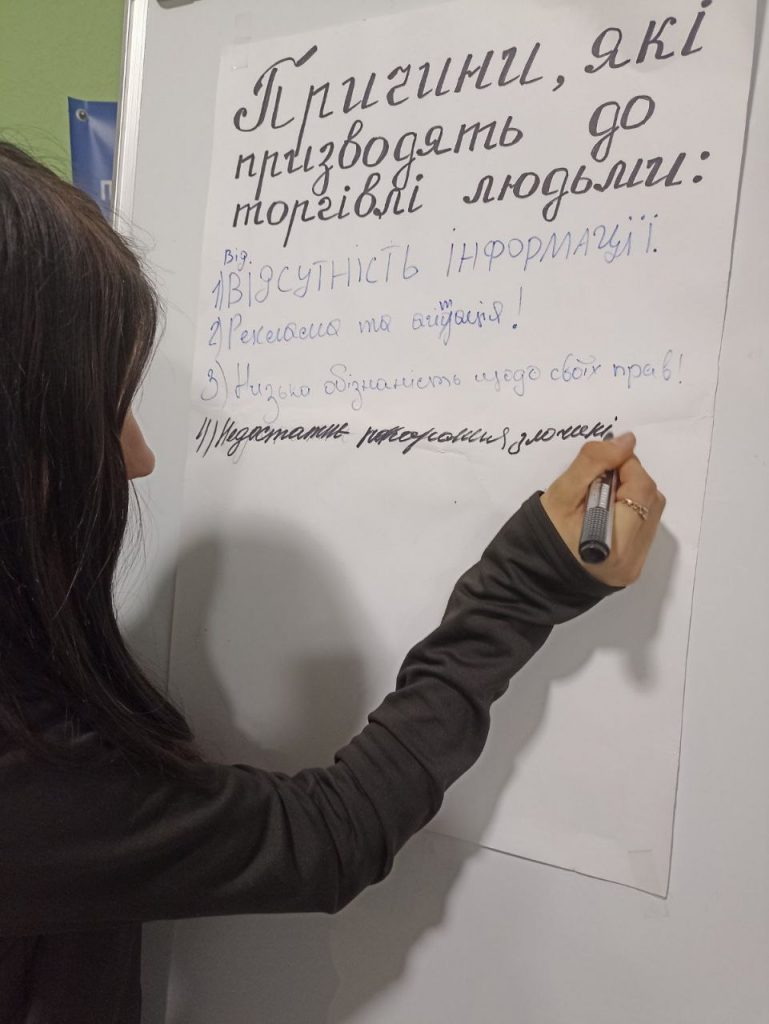 Причини, які
призводять до
торгівлі людьми:
Від.
1) ВІДСУТНІСТЬ ІНФОРМАЦІЇ.
2) Реклама та агітація!
3) Низька обізнаність щодо своїх прав!
4) Недостатнє покарання злочині
П